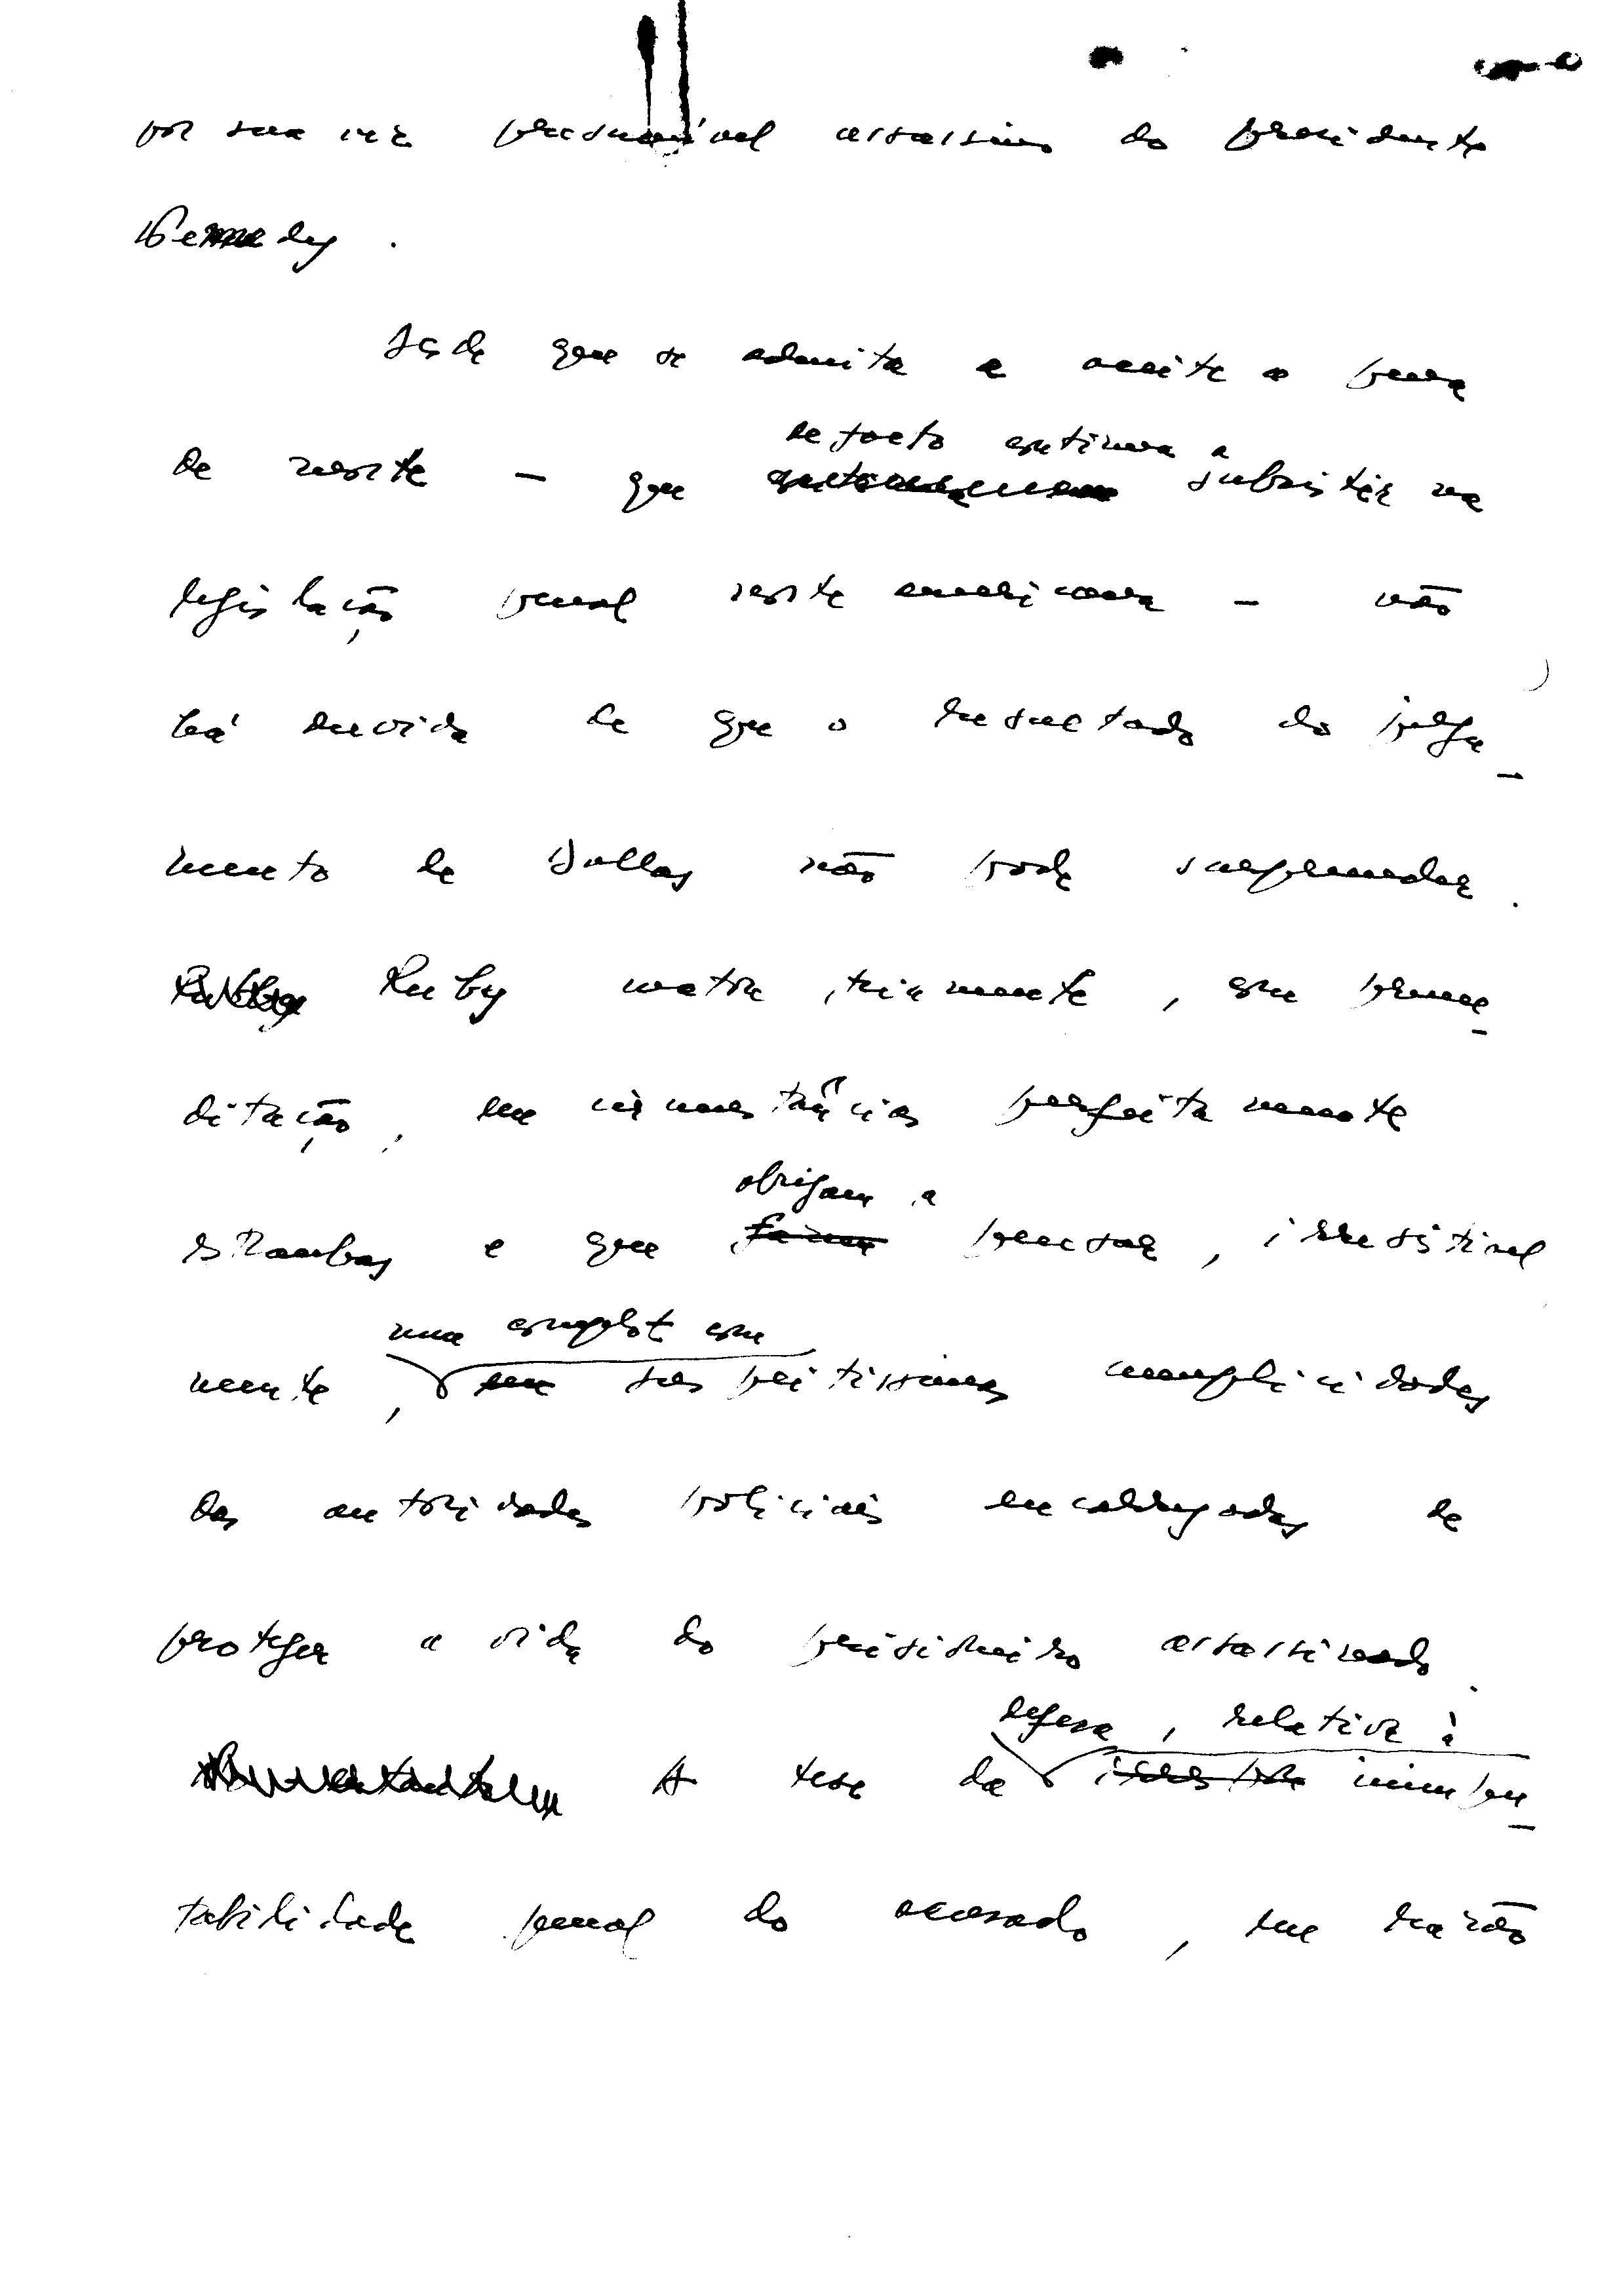 por sua vez presumível assassino do presidente
Kennedy .
Desde que se admita e aceite a pena
de facto continua a
de morte – que subsistir na
legislação penal norte americana – não
há duvida de que o resultado do julga-
mento de Dallas não pode surpreender .
Ruby matou, friamente, com preme-
ditação, em circunstâncias perfeitamente
obrigam a
estranhas e que fazem pensar, irresistivel
num complot com
mente, em suspeitissimas cumplicidades
das autoridades policiais encarregadas de
proteger a vida do prisioneiro assassinado.
defesa, relativa à
A tese da inimpu-
tabilidade penal do acusado, em razão